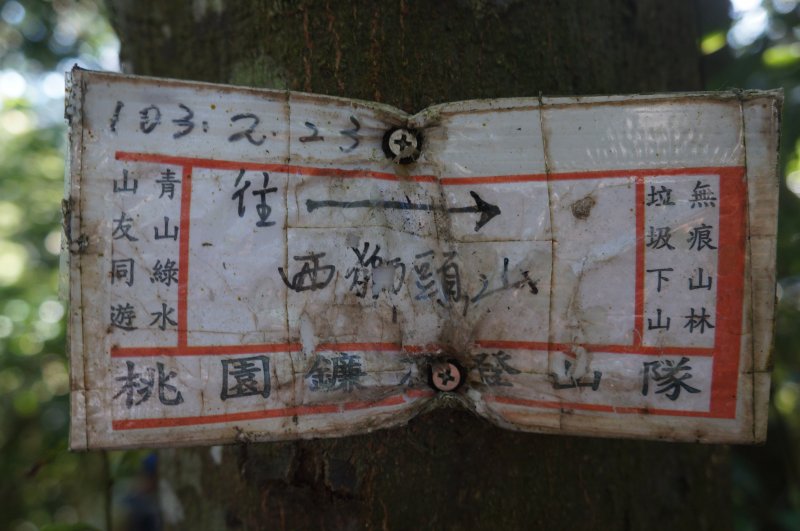 103. 2. 23
往 →
西獅頭山
青山綠水
山友同遊
無痕山林
垃圾下山
桃園鐮 登山隊